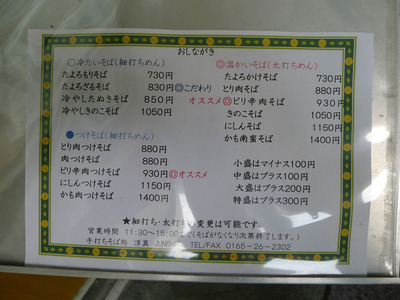 おしながき
○冷たいそば(細打ちめん)
たよろもりそば 730円
たよろざるそば 830円◎こだわり
冷やしたぬきそば 850円
冷やしきのこそば 1050円
●つけそば(細打ちめん)
とり肉つけそば 880円
肉つけそば 880円
ピリ辛肉つけそば 930円◎オススメ
にしんつけそば 1150円
かも肉つけそば 1400円
◎温かいそば(太打ちめん)
たよろかけそば 730円
とり肉そば 880円
オススメ◎ピリ辛肉そば 930円
きのこそば 1050円
にしんそば 1150円
かも南蛮そば 1400円
小盛はマイナス100円
中盛はプラス100円
大盛はプラス200円
特盛はプラス300円
★細打ち・太打ちの変更は可能です。
営業時間 11:30~15:00まで(そばがなくなり次第終了します。)
手打ちそば処 淳真 TEL/FAX 0165-26-2302